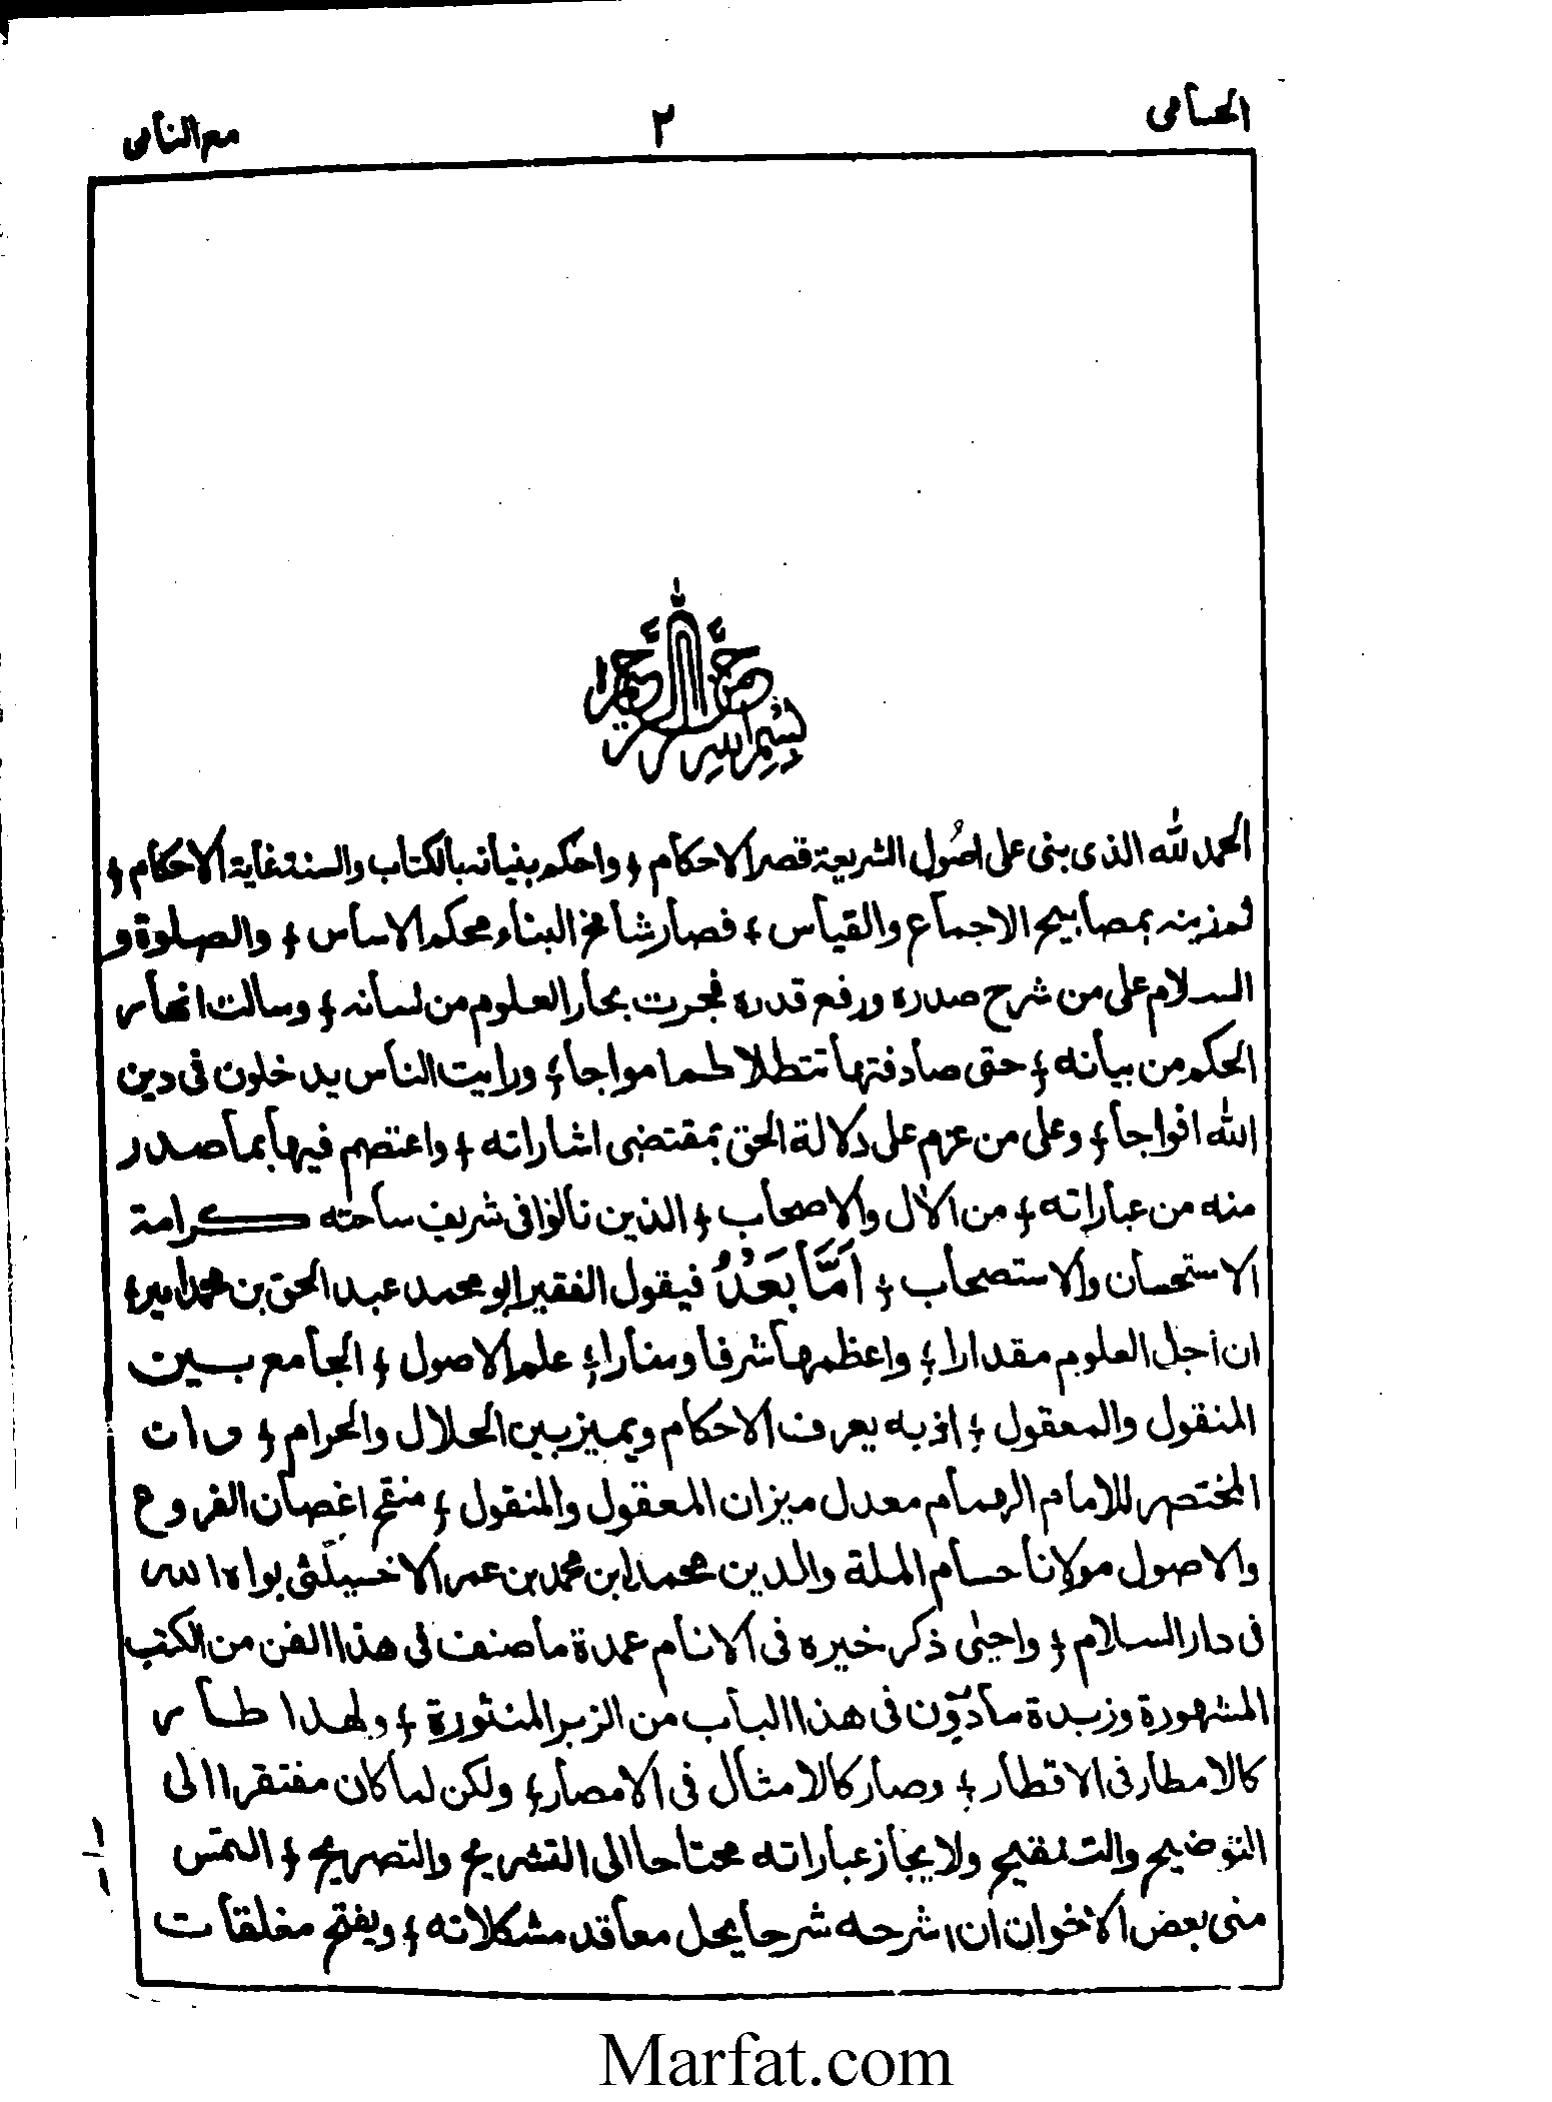 الحسامى ٢ مع النامى
بسم الله الرحمن الرحيم
الحمد لله الذى بنى على اصُول الشريعة قصر الاحكام ؛ واحكم بنيانه بالكتاب والسنة غاية الاحكام ؛
ثم زينه بمصابيح الاجماع والقياس ؛ فصار شامخ البناء محكم الاساس ؛ والصلوة و
السلام على من شرح صدره ورفع قدره فجرت بحار العلوم من لسانه ؛ وسالت انهار
الحكم من بيانه ؛ حتى صادفتها تتطلاطما مواجا ؛ ورايت الناس يدخلون فى دين
الله افواجا ؛ وعلى من عزم على دلالة الحق بمقتضى اشاراته ؛ واعتصم فيها بما صدر
منه من عباراته ؛ من الاٰل والاصحاب ؛ الذين نالوا فى شريف ساحته كرامة
الاستحسان والاستصحاب ؛ اَمَّا بَعْدُ فيقول الفقير ابو محمد عبد الحق بن محمد امير ؛
ان اجل العلوم مقدارا ؛ واعظمها شرفا ومنارا ؛ علم الاصول ؛ الجامع بين
المنقول والمعقول ؛ اذ به يعرف الاحكام ويميز بين الحلال والحرام ؛ وان
المختصر للامام الهمام معدل ميزان المعقول والمنقول ؛ منقح اغصان الفروع
والاصول مولانا حسام الملة والدين محمد ابن محمد بن عمر الاخسيكثى بواه الله
فى دار السلام ؛ واحيٰى ذكر خيره فى الانام عمدة ما صنف فى هذا الفن من الكتب
المشهورة وزبدة ما دوّن فى هذا الباب من الزبر المنثورة ؛ ولهذا طار
كالامطار فى الاقطار ؛ وصار كالامثال فى الامصار ؛ ولكن لما كان مفتقرا الى
التوضيح والتنقيح ولايجاز عباراته محتاجا الى التشريح والتصريح ؛ التمس
منى بعض الاخوان ان اشرحه شرحا يحل معاقد مشكلاته ؛ ويفتح مغلقات
Marfat.com